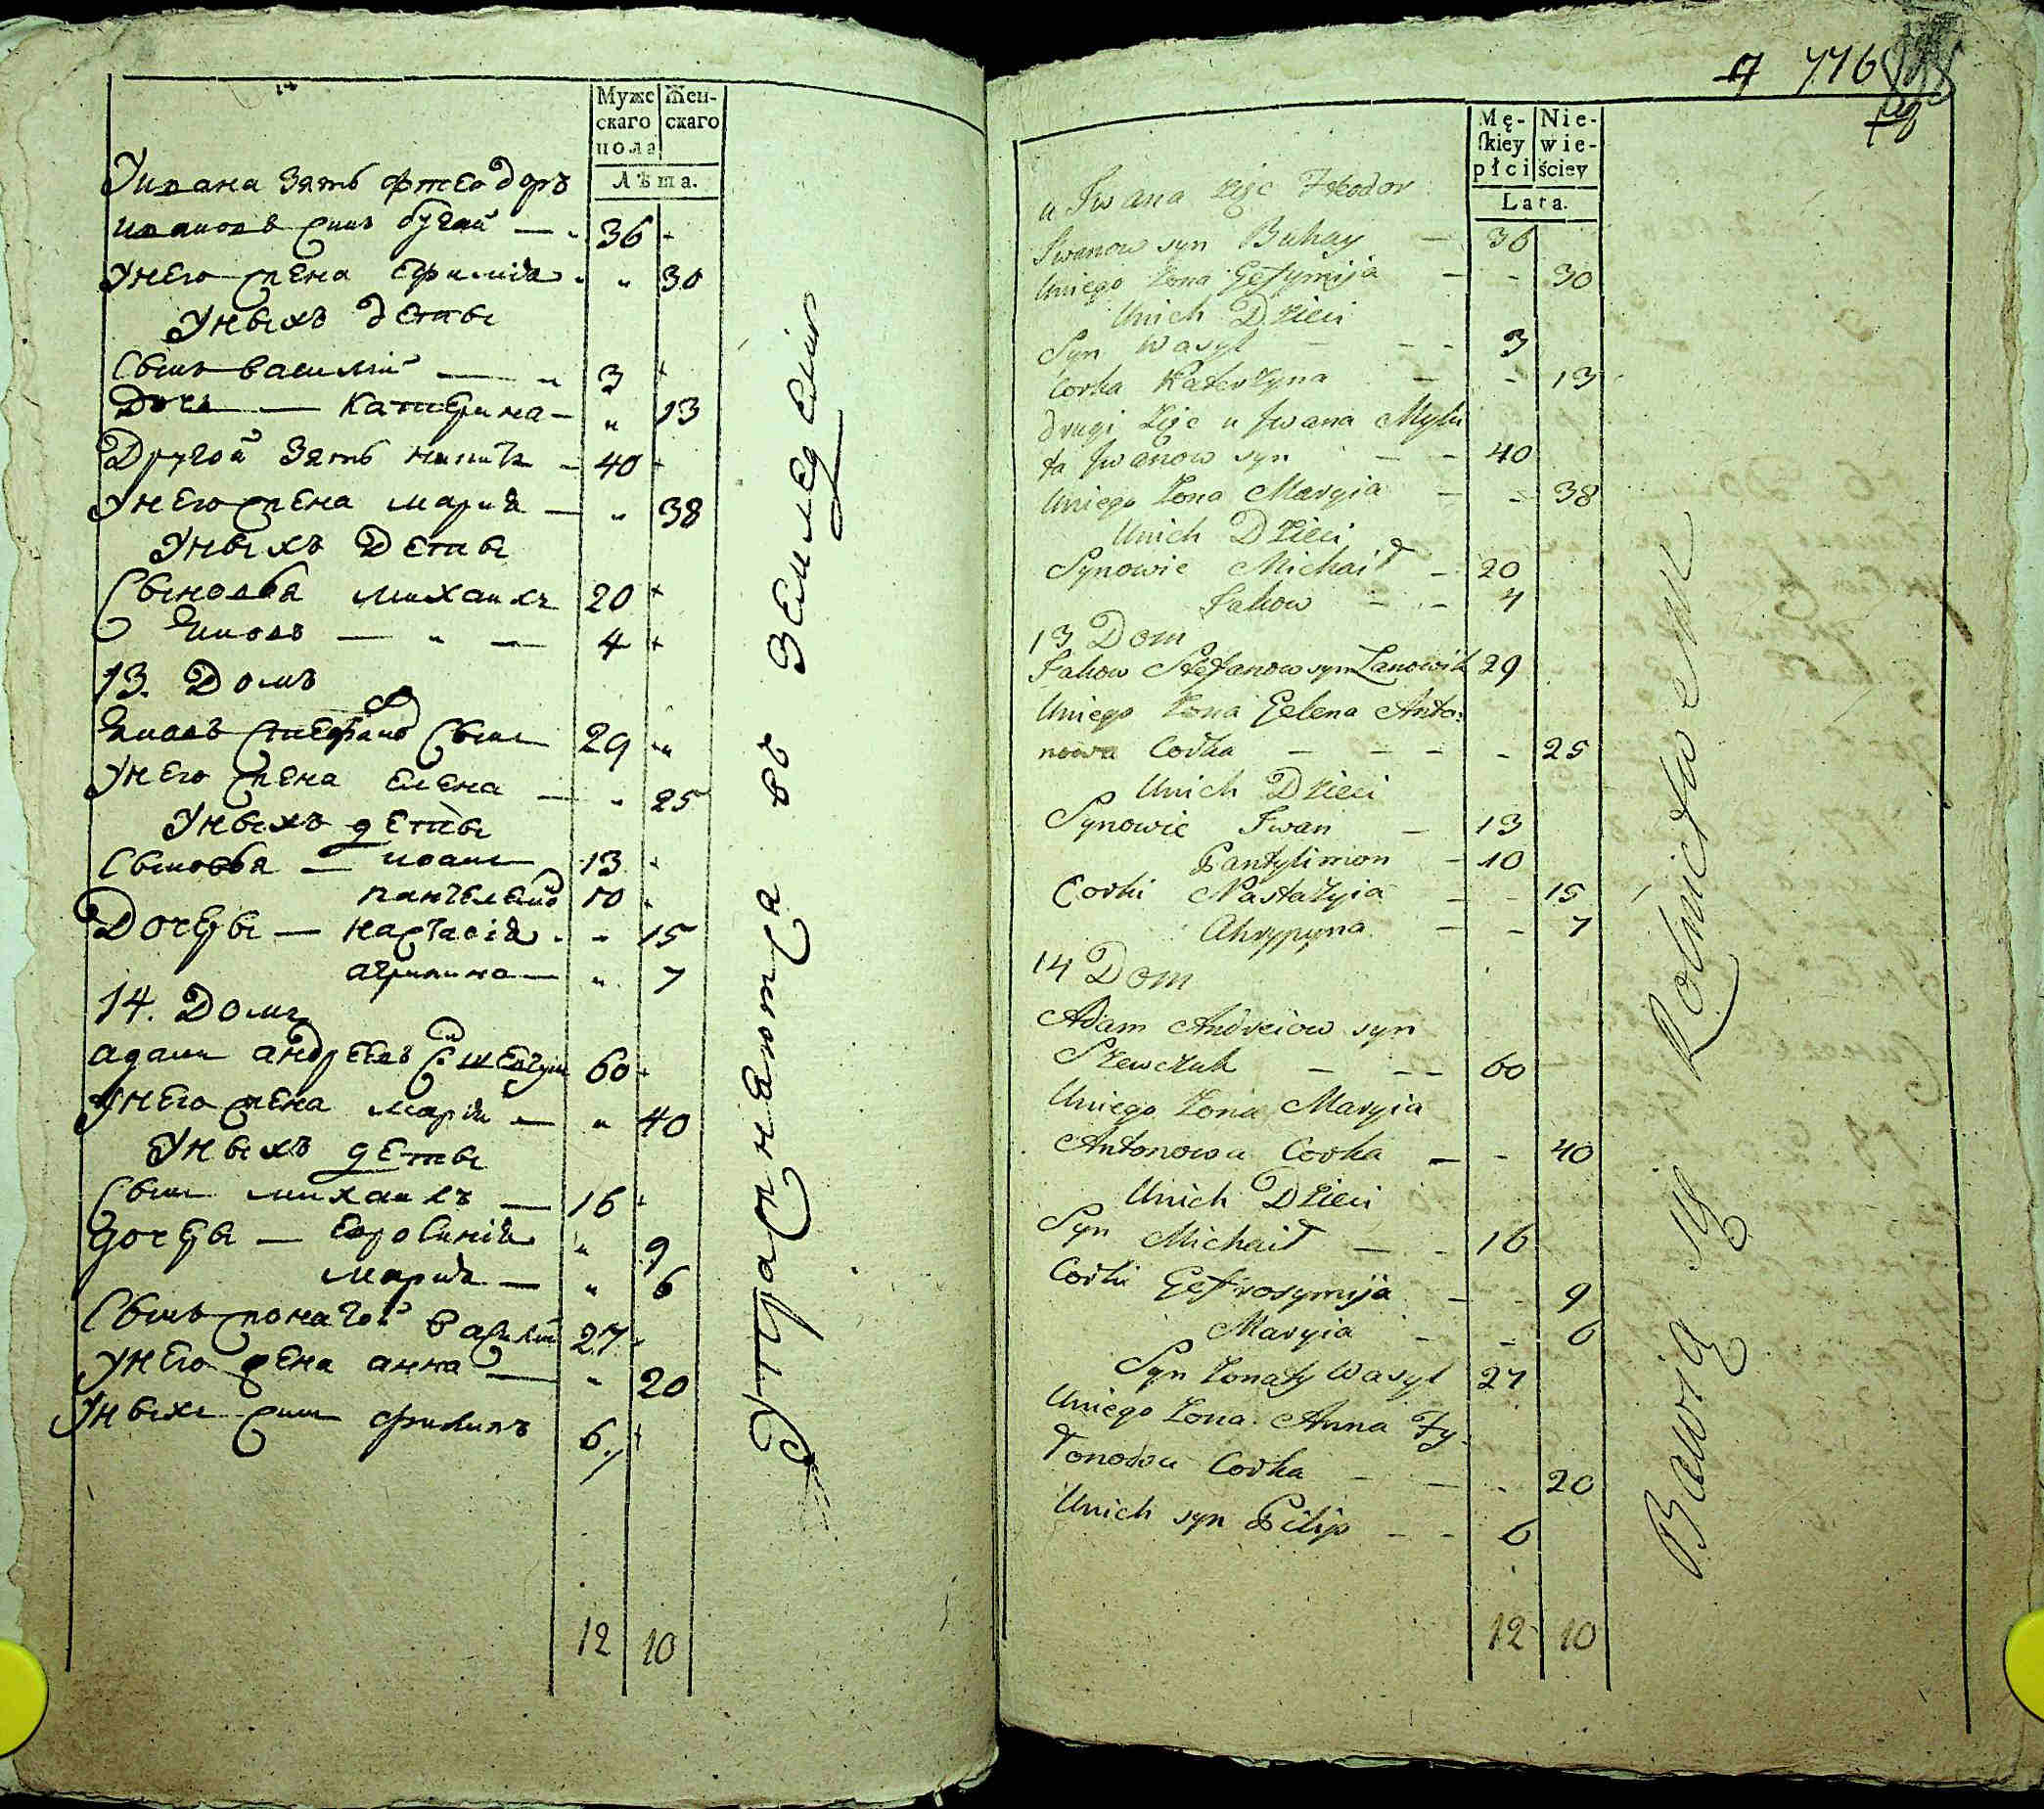 Муже Жен-
скаго скаго
пола
Лѣта.
У ивана зять фтеодоръ
ивановъ синъ бугай — 36
У него жена Ефимія 30
У ныхъ дѣты
Сынъ василій — 3
Дочь — катерина — 13
Другой зять никита — 40
У него жена марія — 38
У ныхъ Дѣты
Сыновья михаилъ 20
Яковъ — 4
13. Домъ
Яковъ стефановъ Сынъ 29
У него жена елена — 25
У ныхъ дѣты
Сыновья — иванъ 13
пантелеймо 10
Дочеры — настасія 15
агрипина — 7
14. Домъ
адамъ андреевъ Сы шевчукъ 60
У него жена марія — 40
У ныхъ дѣты
Сынъ михаилъ — 16
дочеры — евросинія 9
марія — 6
Сынъ жонатой василій 27
У него жена анна — 20
У ныхъ синъ филипъ 6
12 10
Упражняютца въ земледелии
776
Mę- Nie-
ſkiey wie-
płci ściey
Lata.
u Iwana Zięc Fteodor
Iwanow syn Buhay — 36
Uniego Zona Gefymija — - 30
Unich Dzieci
Syn Wasyl — - - 3
Corka Katerzyna — - 13
drugi Zięc u Iwana Myki
ta Iwanow syn — - 40
Uniego Zona Maryia — - 38
Unich Dzieci
Synowie Michaił — 20
Jakow — - 4
13 Dom
Jakow Stefanow syn Lanowik 29
Uniego Zona Gelena Anto:
nowa Corka — - - - 25
Unich Dzieci
Synowie Iwan — 13
Pantylimon — 10
Corki Nastazyia — - 15
Ahrypyna — - 7
14 Dom
Adam Andreiow syn
Szewczuk — - — 60
Uniego Zona Maryia
Antonowa Corka — - 40
Unich Dzieci
Syn Michaił — - 16
Corki Gefrosymija — - 9
Maryia — - 6
Syn Zonaty Wasyl 27
Uniego Zona Anna Fy
donowa Corka — - - 20
Unich syn Pilip — - 6
12 10
Bawią się Rolnictwem